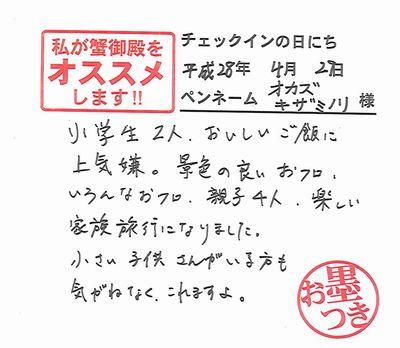 私が蟹御殿を
オススメ
します!!
チェックインの日にち
平成28年 4月 2日
ペンネーム オカズ
キザミノリ 様
小学生2人、おいしいご飯に
上気嫌。景色の良いおフロ、
いろんなおフロ、親子4人、楽しい
家族旅行になりました。
小さい子供さんがいる方も
気がねなく、これますよ。
お墨つき